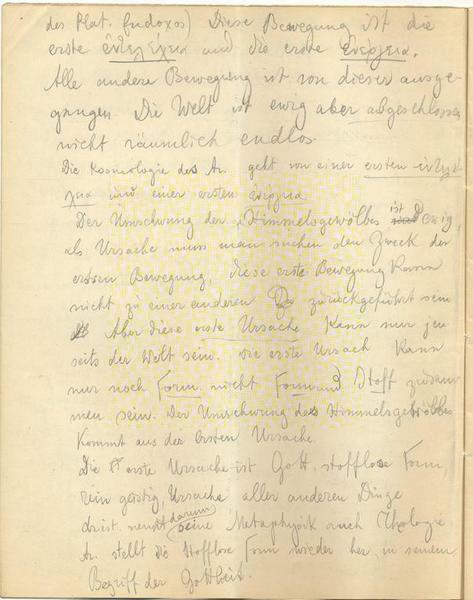 des Plat. Eudoxos) Diese Bewegung ist die
erste ἐντελέχεια und die erste ἐνέργεια.
Alle andere Bewegung ist von dieser ausge-
gangen. Die Welt ist ewig aber abgeschlossen
nicht räumlich endlos.
Die Kosmologie des Ar. geht von einer ersten ἐντελέ-
χεια und einer ersten ἐνέργεια
Der Umschwung des Himmelsgewölbes ist ewig,
als Ursache muss man suchen den Zweck der
ersten Bewegung, diese erste Bewegung kann
nicht zu einer anderen zurückgeführt sein
Aber diese erste Ursache kann nur jen
seits der Welt sein. die erste Ursach kann
nur noch Form nicht Form und Stoff zusam
men sein. Der Umschwung des Himmelsgewölbes
kommt aus der ersten Ursache.
Die erste Ursache ist Gott, stofflose Form,
rein geistig, Ursache aller anderen Dinge
Arist. nennt darum seine Metaphysik auch Theologie
Ar. stellt die stofflose Form wieder her in seinem
Begriff der Gottheit.